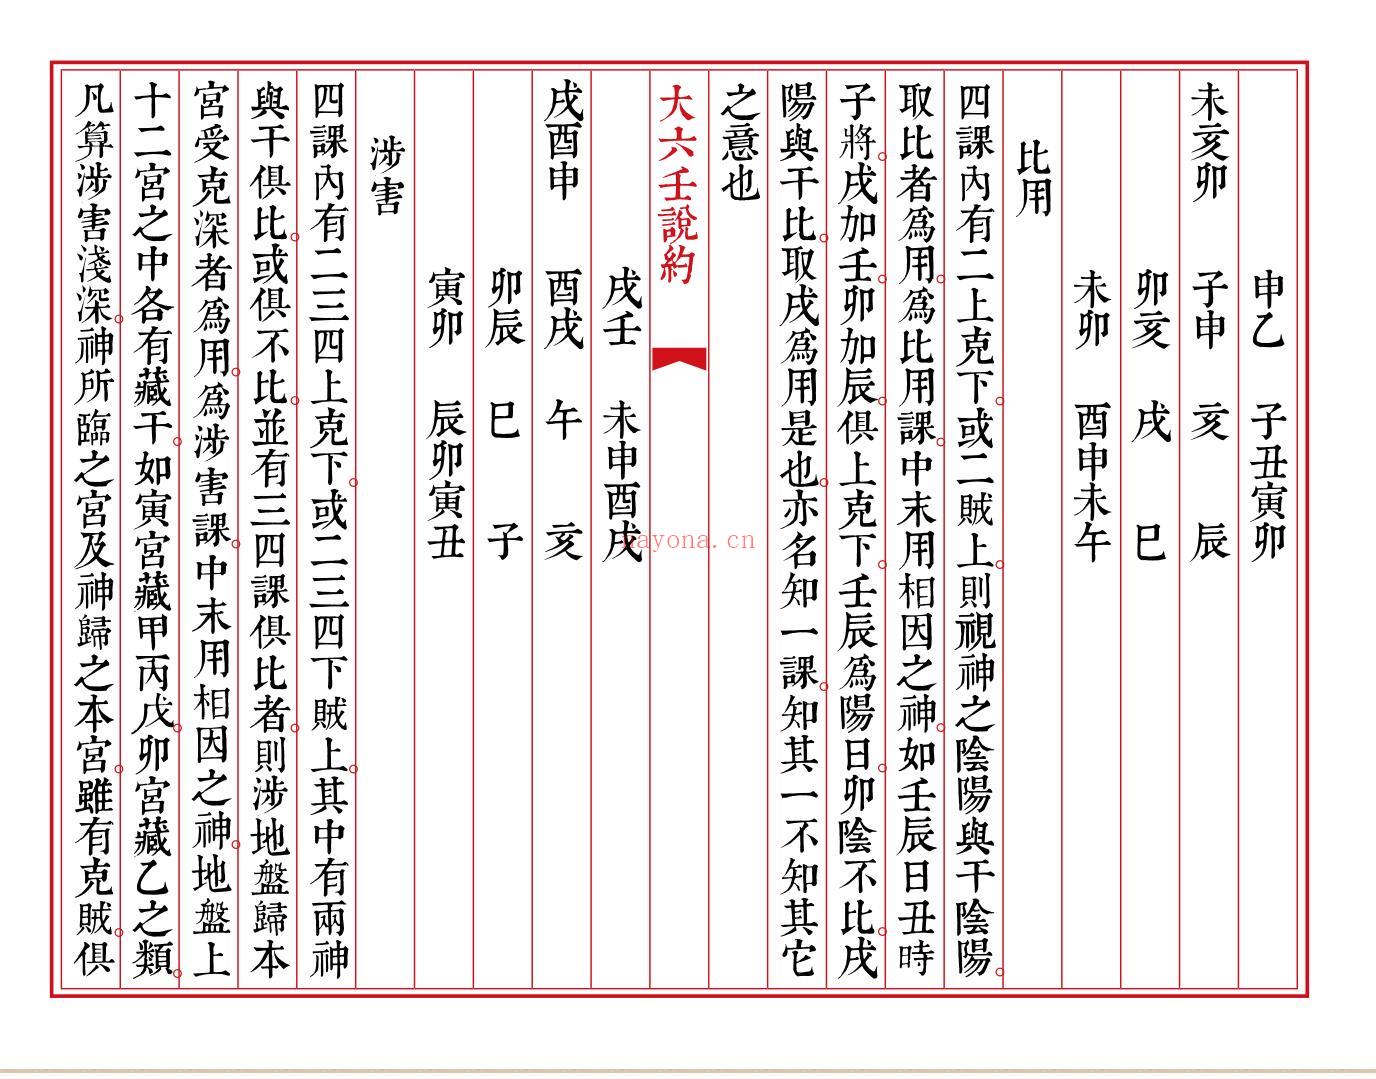 申乙　子丑寅卯
未亥卯　子申　亥　辰
卯亥　戌　巳
未卯　酉申未午
比用
四課內有二上克下。或二賊上。則視神之陰陽與干陰陽。
取比者爲用。爲比用課。中末用相因之神。如壬辰日丑時
子將。戌加壬。卯加辰。俱上克下。壬辰爲陽日。卯陰不比。戌
陽與干比。取戌爲用是也。亦名知一課。知其一不知其它
之意也
大六壬說約
戌壬　未申酉戌
戌酉申　酉戌　午　亥
卯辰　巳　子
寅卯　辰卯寅丑
涉害
四課內有二三四上克下。或二三四下賊上。其中有兩神
與干俱比。或俱不比。並有三四課俱比者。則涉地盤歸本
宮受克深者爲用。爲涉害課。中末用相因之神。地盤上
十二宮之中各有藏干。如寅宮藏甲丙戊。卯宮藏乙之類。
凡算涉害淺深。神所臨之宮及神歸之本宮。雖有克賊。俱
nayona.cn